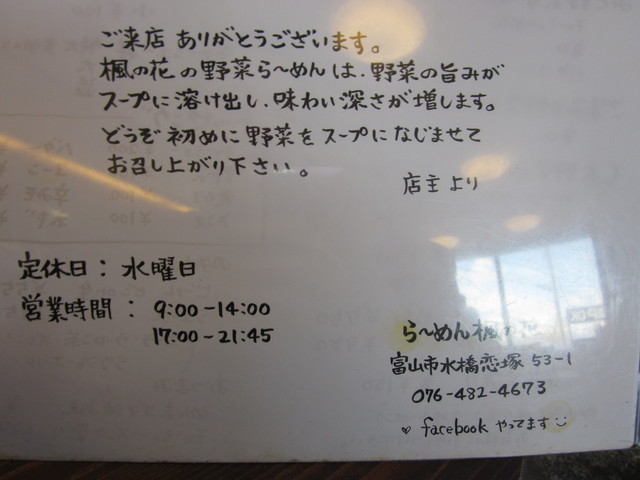 ご来店 ありがとうございます。
楓の花の野菜ら〜めんは、野菜の旨みが
スープに溶け出し、味わい深さが増します。
どうぞ初めに野菜をスープになじませて
お召し上がり下さい。
店主より
定休日：水曜日
営業時間：9:00-14:00
17:00-21:45
ら〜めん楓
富山市水橋恋塚 53-1
076-482-4673
♥ facebook やってます